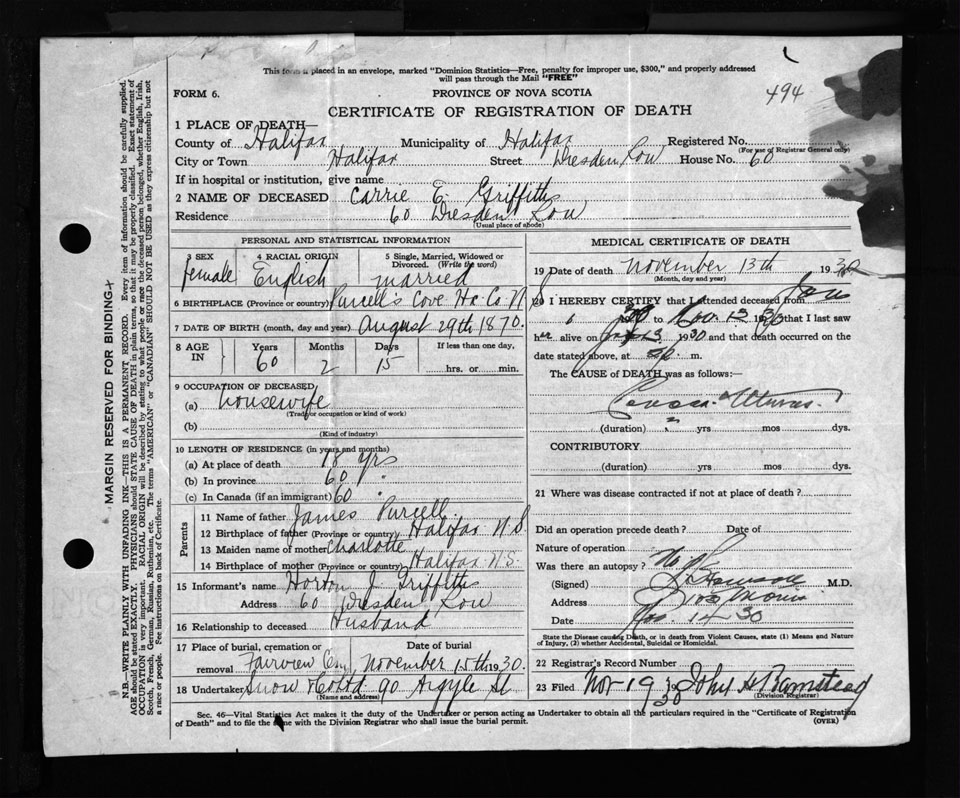 This form is placed in an envelope, marked "Dominion Statistics—Free, penalty for improper use, $300," and properly addressed
will pass through the Mail "FREE"
FORM 6.
PROVINCE OF NOVA SCOTIA
494
CERTIFICATE OF REGISTRATION OF DEATH
1 PLACE OF DEATH—
County of Halifax Municipality of Halifax Registered No.
(For use of Registrar General only)
City or Town Halifax Street Dresden Row House No. 60
If in hospital or institution, give name
2 NAME OF DECEASED Carrie E. Griffiths
Residence 60 Dresden Row
(Usual place of abode)
PERSONAL AND STATISTICAL INFORMATION
3 SEX 4 RACIAL ORIGIN 5 Single, Married, Widowed or
Divorced. (Write the word)
female English married
6 BIRTHPLACE (Province or country) Purcell's Cove Hx. Co. N.S
7 DATE OF BIRTH (month, day and year) August 29th 1870.
8 AGE IN Years Months Days If less than one day,
60 2 15 hrs. or min.
9 OCCUPATION OF DECEASED
(a) housewife
(Trade or occupation or kind of work)
(b)
(Kind of industry)
10 LENGTH OF RESIDENCE (in years and months)
(a) At place of death 18 yrs
(b) In province 60 "
(c) In Canada (if an immigrant) 60 "
Parents
11 Name of father James Purcell
12 Birthplace of father (Province or country) Halifax N.S
13 Maiden name of mother Charlotte
14 Birthplace of mother (Province or country) Halifax N.S.
15 Informant's name Horton J. Griffiths
Address 60 Dresden Row
16 Relationship to deceased Husband
17 Place of burial, cremation or removal Date of burial
Fairview Cem. November 15th 1930.
18 Undertaker Snow & Co Ltd 90 Argyle St
MEDICAL CERTIFICATE OF DEATH
19 Date of death November 13th 1930
(Month, day and year)
20 I HEREBY CERTIFY that I attended deceased from
to Nov. 13 1930 that I last saw
her alive on 13 1930 and that death occurred on the
date stated above, at m.
The CAUSE of DEATH was as follows:—
Uterus
(duration) ? yrs mos. dys.
CONTRIBUTORY
(duration) yrs mos dys.
21 Where was disease contracted if not at place of death?
Did an operation precede death? Date of
Nature of operation
Was there an autopsy? No
(Signed) M.D.
Address Morris
Date Nov. 14 30
State the Disease causing Death, or in death from Violent Causes, state (1) Means and Nature
of Injury, (2) whether Accidental, Suicidal or Homicidal.
22 Registrar's Record Number
23 Filed Nov 19 1930 John H Barnstead
(Division Registrar)
Sec. 46—Vital Statistics Act makes it the duty of the Undertaker or person acting as Undertaker to obtain all the particulars required in the "Certificate of Registration
of Death" and to file the same with the Division Registrar who shall issue the burial permit.
(OVER)
MARGIN RESERVED FOR BINDING
N.B.—WRITE PLAINLY WITH UNFADING INK—THIS IS A PERMANENT RECORD. Every item of information should be carefully supplied.
AGE should be stated EXACTLY. PHYSICIANS should STATE CAUSE OF DEATH in plain terms, so that it may be properly classified. Exact statement of
OCCUPATION is very important. RACIAL ORIGIN will be described by stating to what people or race the deceased person belonged, whether English, Irish,
Scotch, French, German, Russian, Ruthenian, etc. The terms "AMERICAN" or "CANADIAN" SHOULD NOT BE USED as they express citizenship but not
a race or people. See instructions on back of Certificate.